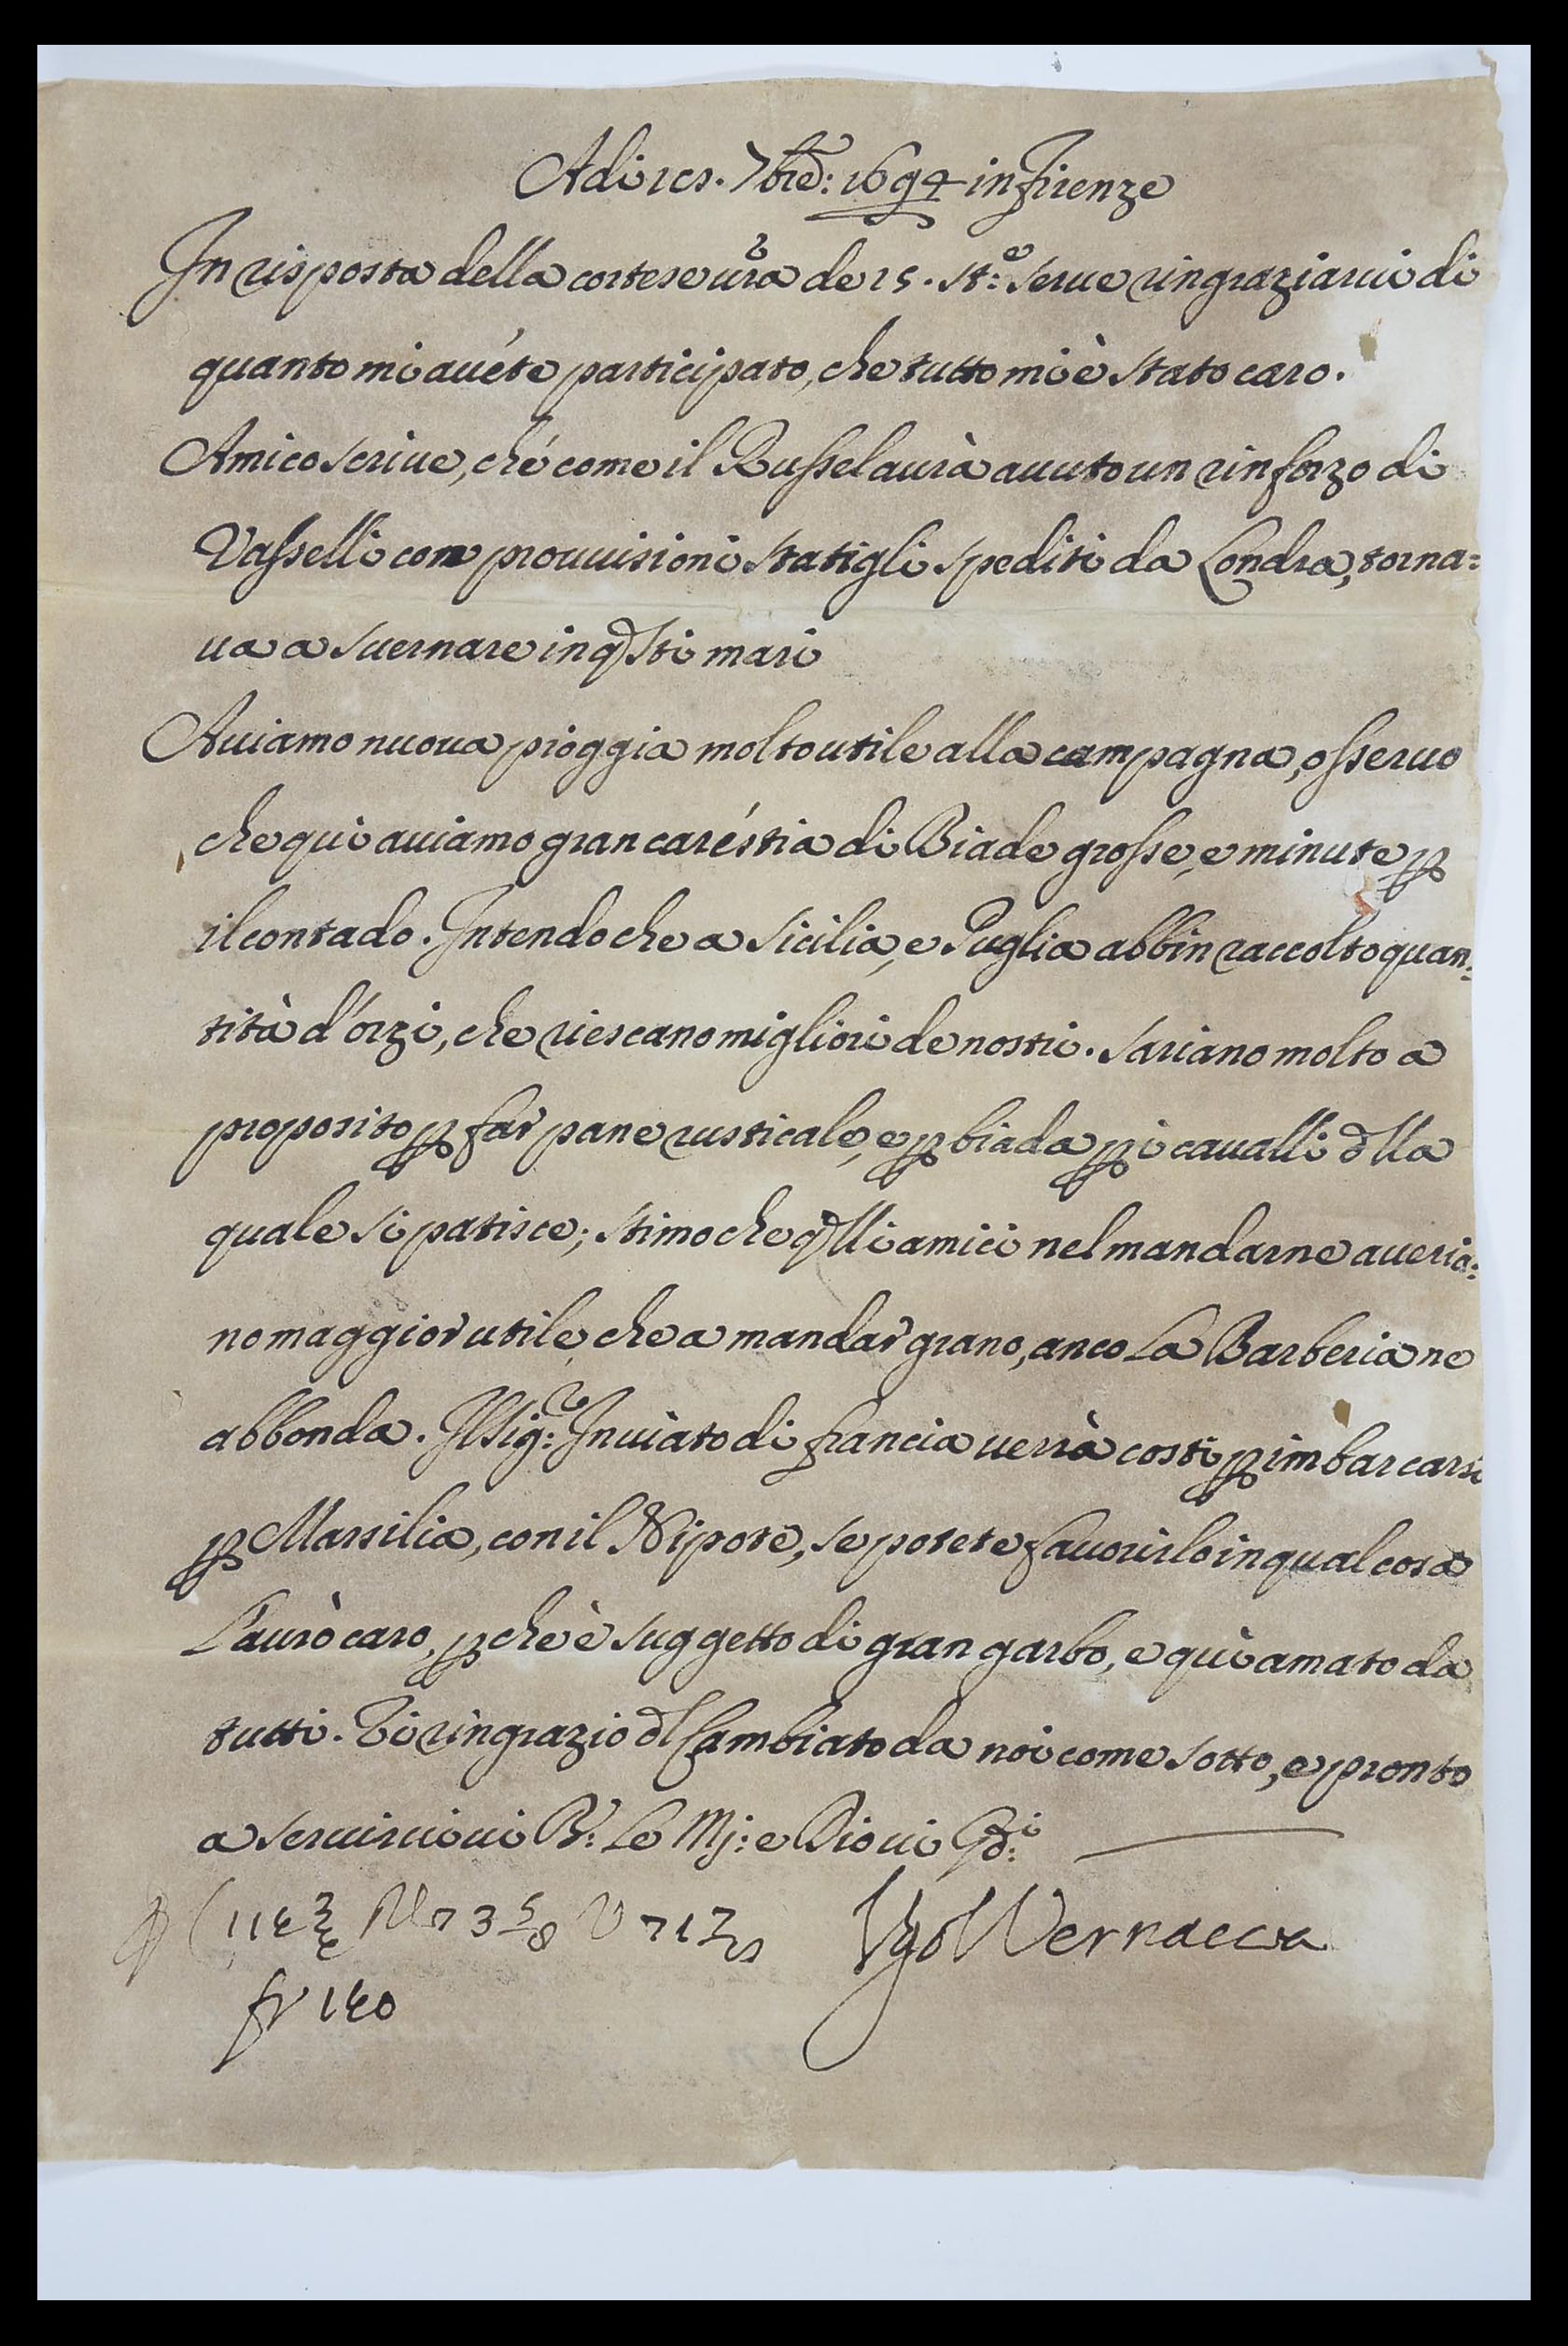 Adi 1cr. 7bre: 1694 in firenze
In risposta della cortese vra de 15. st:e serue ringraziarui di
quanto mi auéte participato, che tutto mi è stato caro.
Amico scriue, ché come il Russel aurà auuto un rinforzo di
Vasselli com prouuisioni statigli spediti da Londra, torna=
ua a suernare in qsti mari
Auiamo nuoua pioggia molto utile alla campagna, osseruo
che qui auiamo gran caréstia di Biade grosse, e minute p
il contado. Intendo che a Sicilia, e Puglia abbin raccolto quan=
tità d'órzi, che riescano migliori de nostri. Sariano molto a
proposito p far pane rusticale, e p biada p i caualli dlla
quale si patisce; stimo che qlli amici nel mandarne aueria=
no maggior utile che a mandar grano, anco La Barberia ne
abbonda. Il Sig:r Inuiàto di francia uerrà costi p imbarcarsi
p Marsilia, con il Nipote, se potete fauorirlo in qual cosa
L'aurò caro, p che è suggetto di gran garbo, e quì amato da
tutti. Vi ringrazio dl Cambiato da noi come sotto, e pronto
a seruirui ui B: Le Mj: e Dio ui Gd:i
fr 140 Vgo Vernacca